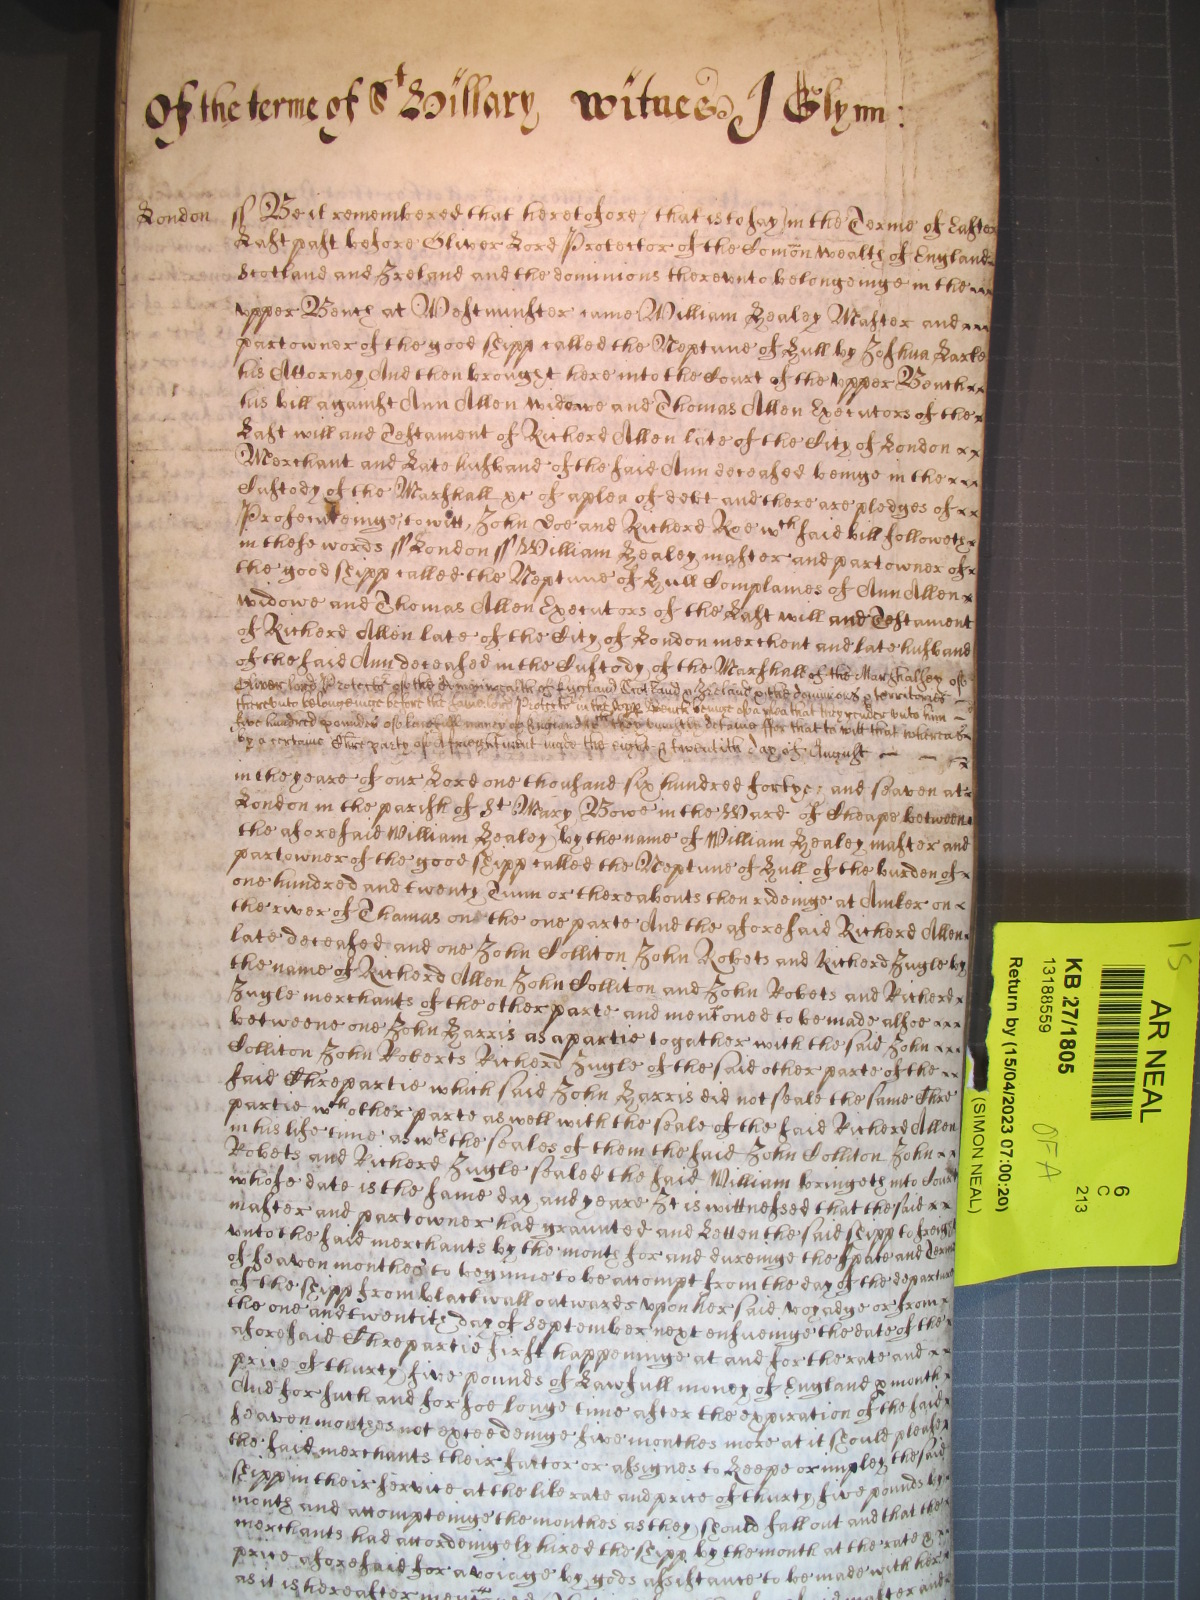 Of the terme of St Hillary witnes J Glynn:
London ss Be it remembered that heretofore, that is to say, in the Terme of Easter
Last past before Oliver Lord Protector of the Comon Wealth of England
Scotland and Ireland and the dominions thereunto belongeinge in the
upper Bench at Westminster came William Healey Master and
partowner of the good shipp called the Neptune of Hull by Joshua Larke
his Attorney And then brought here into the Court of the upper Bench
his bill against Ann Allen widowe and Thomas Allen Executors of the
Last will and Testament of Richard Allen late of the City of London
Merchant and Late husband of the said Ann deceased beinge in the
Custody of the Marshall &c of a plea of debt and there are pledges of
Prosecuteinge, to witt, John Doe and Richard Roe wch said bill followeth
in these words ss London ss William Healey master and partowner of
the good shipp called the Neptune of Hull Complaines of Ann Allen
widowe and Thomas Allen Executors of the Last will and Testament
of Richard Allen late of the City of London merchant and late husband
of the said Ann deceased in the Custody of the Marshall of the Marshalsey of
Oliver lord Protector of the Comonwealth of England Scotland & Ireland & the dominions & territories
thereunto belongeinge before the same lord Protector in the upper Bench beinge of a plea that they render unto him
five hundred pounds of lawfull money of England wch they uniustly detaine ffor that to witt that whereas
by a certaine Chre party of Afreightment made the eight & twentith day of August
in the yeare of our Lord one thousand six hundred fortye, and seaven at
London in the parish of St Mary Bowe in the Ward of Cheape betweene
the aforesaid William Healey by the name of William Healey master and
partowner of the good shipp called the Neptune of Hull of the burden of
one hundred and twenty Tunn or thereabouts then rideinge at Anker on
the river of Thamas one the one parte And the aforesaid Richard Allen
late deceased and one John Colliton John Robets and Richard Jugle by
the name of Richard Allen John Colliton and John Robets and Richard
Jugle merchants of the other parte and mentoned to be made alsoe
betweene one John Harris as a partie together with the said John
Colliton John Roberts Richard Jugle of the said other parte of the
said Chrepartie which said John Harris did not seale the same Chre
partie wch other parte aswell with the seale of the said Richard Allen
in his life time as wth the seales of them the said John Colliton John
Robets and Richard Jugle sealed the said William bringeth into Court
whose date is the same day and yeare It is wittnessed that the said
master and partowner had graunted and Letten the said shipp to freight
unto the said merchants by the month for and dureinge the space and Terme
of seaven monthes to beginne to be accompt from the day of the departure
of the shipp from blackwall outwards upon her said voyadge or from
the one and twentith day of September next ensueinge the date of the
aforesaid Chrepartie first happeninge at and for the rate and
price of thurty five pounds of Lawfull money of England p month
And for such and for soe longe time after the expiration of the said
seaven monthes not exceedeinge five monthes more as it should please
the said merchants their factor or assignes to keepe or imploy the said
shipp in their service at the like rate and price of thurty five pounds by
month and accompteinge the monthes as they should fall out and that the
merchants had accordeingely hired the shipp by the month at the rate &
price aforesaid for a voiage by gods assistance to be made with her
as it is hereafter mentoned
AR NEAL
6
C
213
KB 27/1805
13188559
Return by (15/04/2023 07:00:20)
(SIMON NEAL)
15
OFA